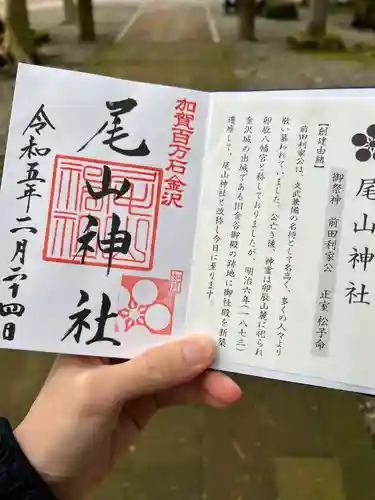 加賀百万石金沢
尾山神社
令和五年二月二十四日
尾山神社
御祭神 前田利家公 正室 松子命
【創建由緒】
前田利家公は、文武兼備の名将として名高く、多くの人々より
敬い慕われていました。公亡き後、神霊は卯辰山麓に祀られ
卯辰八幡宮と称しておりましたが、明治6年(1873)
金沢城の出城である旧金谷御殿の跡地に御社殿を新築
遷座して、尾山神社と改称し今日に至ります。